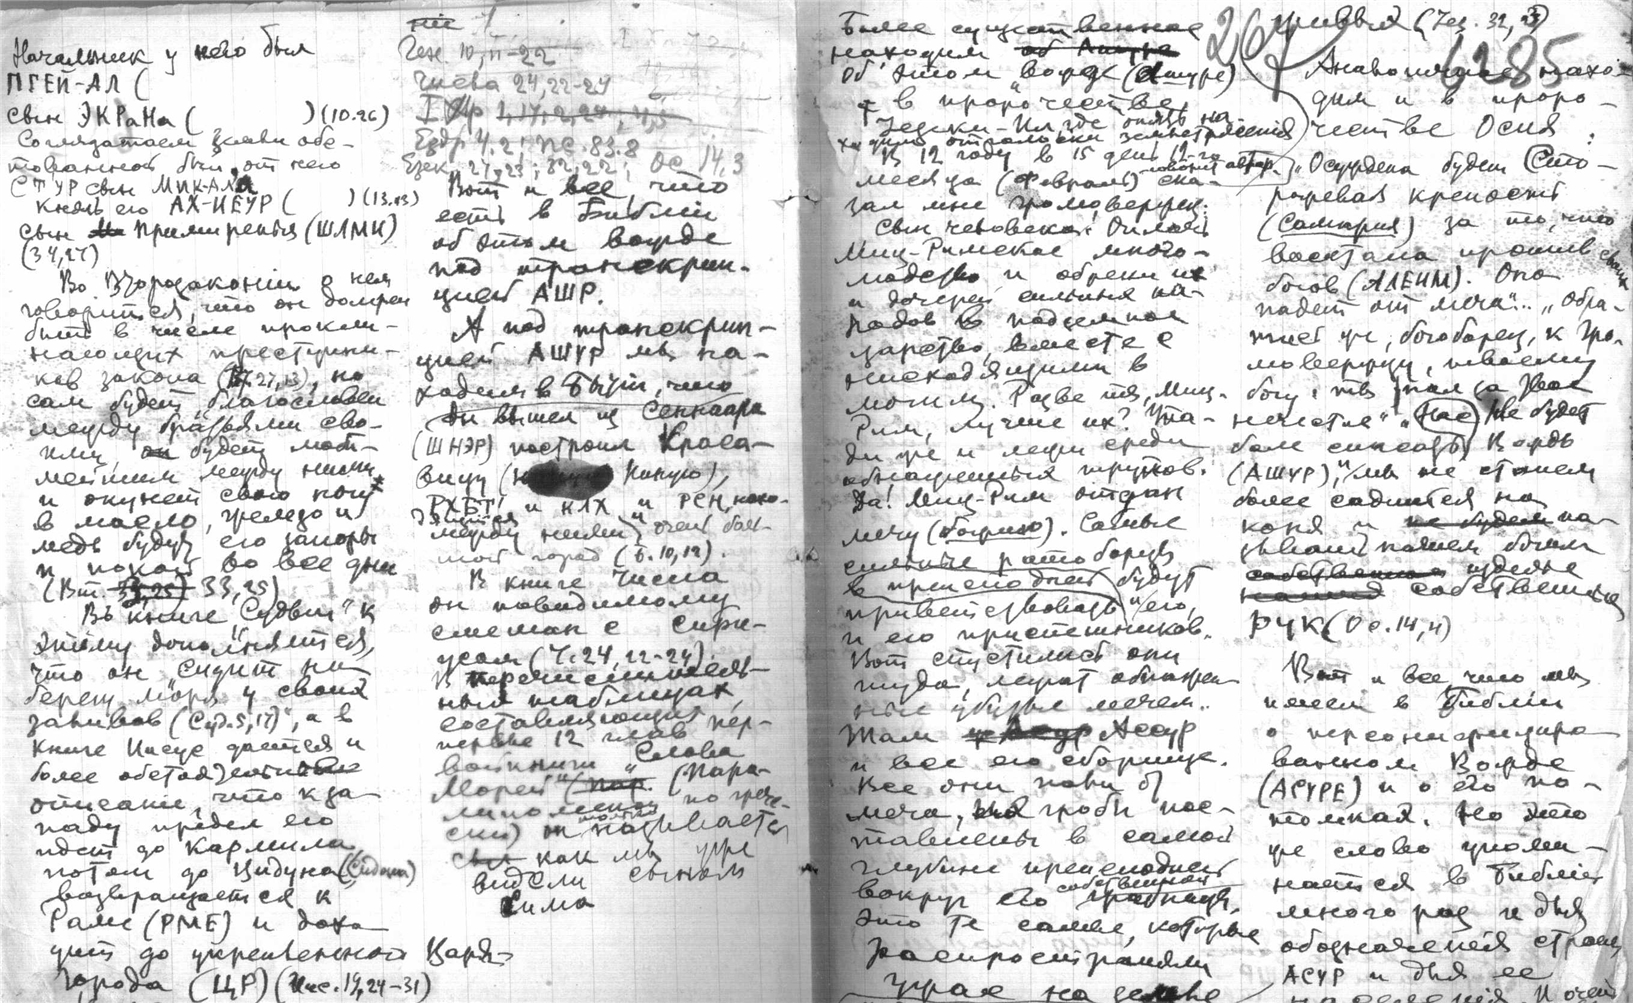 Начальник у него был
ПГЕЙ-АЛ (
сын ЭКРаНа ( ) (10.26)
Соглядатаем земли обе-
тованной был от него
СТУР сын МИКАЛА
Князь его АХ-ИЕУР ( ) (13.13)
сын Примиренья (ШЛМИ)
(34,27)
Во Второзаконии о нем
говорится, что он должен
быть в числе прокли-
нающих преступни-
ков закона (27,13), но
сам будет благословен
между братьями сво-
ими, он будет люби-
мейшим между ними
и окунет свою ногу
в масло, железо и
медь будут его запоры
и покой во все дни
(Вт. 33,25) 33,25)
Въ книге "Судьи" к
этому дополняется,
что он сидит на
берегу моря у своих
заливов (Суд. 5,17)", а в
Книге Иисус дается и
более
описание, что к за-
паду предел его
идет до Кармила
потом до Цидуна (Сидона)
возвращается к
Раме (РМЕ) и дохо-
дит до укрепленного Царя-
Города (ЦР) (Иис. 19,24-31)
Ген 10, 11-22
Числа 24,22-24
Ездр 4.2; Пс. 83.8
Езек. 27,23; 32,22; Ос 14,3
Вот и все, что
есть в Библии
об этом вожде
под транскрип-
цией АШР.
А под транскрип-
цией АШУР мы на-
ходим в Бытии, что
Он вышел из Сеннаара
(ШНЭР) построил Краса-
вицу ( Ниную),
РХБТ и КЛХ и РСН, нахо-
дящийся
между ними, очень боль-
шой город (Б. 10,12).
В книге Числа
он повидимому
смешан с сири-
усом (Ч. 24, 22-24).
В перечислитель-
ных таблицах,
составляющих пер-
первые 12 глав
"Слова
(Пара-
по грече-
ски) он называется
как мы уже
видели сыном
Сима
Более существенное
находим об Ашуре
об этом вожде (Ашуре)
в пророчестве
В 12 году в 15 день 12-го
месяца (Февраль) ска-
зал мне громовержец:
Сын человека! Оплачь
Миц-Римское много-
людство и обреки их
и дочерей сильных на-
родов в подземное
царство, вместе с
нисходящими в
могилу. Разве ты, Миц-
Рим, лучше их? Упа-
ди же и ляжь среди
обнаженных трупов.
Да! Миц-Рим отдан
мечу (богинь). Самые
сильные ратоборцы
в преисподней будут
приветствовать его,
и его приспешников.
Вот спустились они
туда, лежат обнажен-
ные убитые мечем..
Там Ассур
и все его сборище.
Все они пали от
меча, гробы пос-
тавлены в самой
глубине преисподней
вокруг его собственной гробницы.
Это те самые, которые
распространяли
ужас на земле
267
живых (Иез. 32, 23)
6285
Аналогичное нахо-
дим и в проро-
честве Осия:
"Осуждена будет Сто-
рожевая крепость
(Самария) за то, что
востала против своих
богов (АЛЕИМ). Она
падет от меча"... "Обра-
тись же, богоборец, к Гро-
мовержцу, твоему
богу: ты пал за твое
нечестье" "Нас не будет
боле спасать Вождь
(АШУР), мы не станем
более садиться на
коня и не будем на-
зывать нашим богом
изделье
собственных
РУК (Ос. 14, 4)
Вот и все, что мы
имеем в Библии
о персонифициро-
ванном Вожде
(АСУРЕ) и о его по-
томках. Но это
же слово упоми-
нается в Библии
много раз и для
обозначения страны
АСУР и для ее